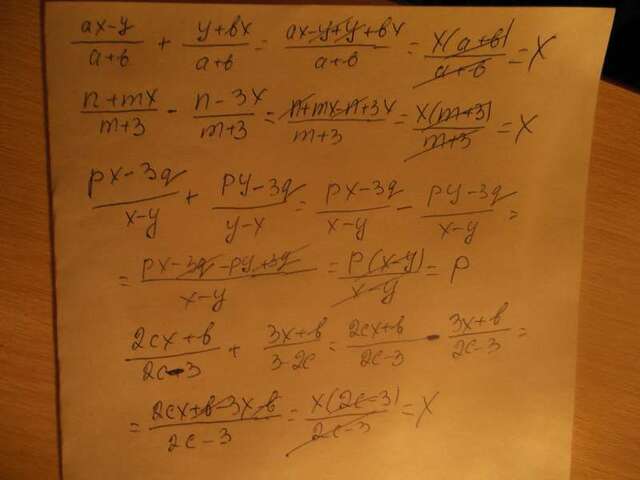 (ax-y)/(a+в) + (y+вx)/(a+в) = (ax-y+y+вx)/(a+в) = x(a+в)/(a+в) = x
(n+mx)/(m+3) - (n-3x)/(m+3) = (n+mx-n+3x)/(m+3) = x(m+3)/(m+3) = x
(px-3q)/(x-y) + (py-3q)/(y-x) = (px-3q)/(x-y) - (py-3q)/(x-y) =
= (px-3q-py+3q)/(x-y) = p(x-y)/(x-y) = p
(2cx+в)/(2c-3) + (3x+в)/(3-2c) = (2cx+в)/(2c-3) - (3x+в)/(2c-3) =
= (2cx+в-3x-в)/(2c-3) = x(2c-3)/(2c-3) = x